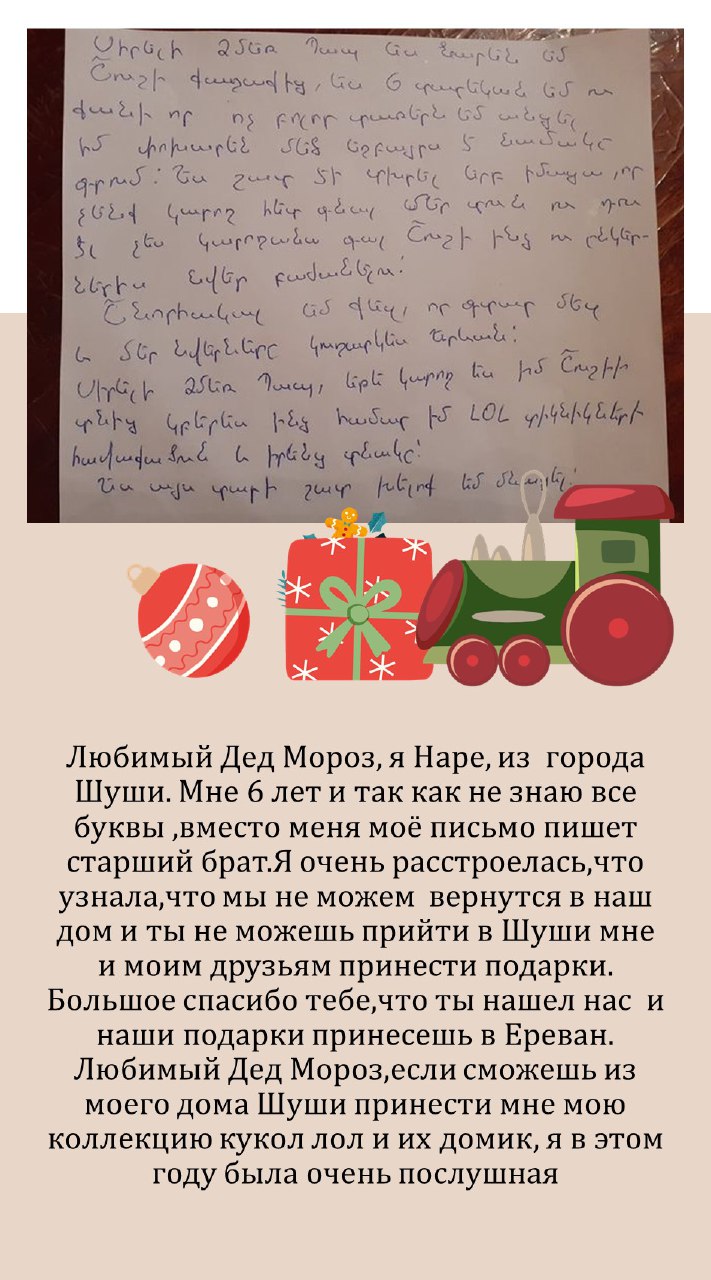 Սիրելի Ձմեռ Պապ ես Նարեն եմ
Շուշի քաղաքից, ես 6 տարեկան եմ ու
քանի որ ոչ բոլոր տառերն եմ անցել
իմ փոխարեն մեծ եղբայրս է նամակը
գրում: Ես շատ եմ տխրել երբ իմացա, որ
չենք կարող հետ գնալ մեր տուն ու դու
էլ չես կարողանա գալ Շուշի ինձ ու ընկեր-
ներիս նվեր բաժանելու:
Շնորհակալ եմ քեզ, որ գտար մեզ
և մեր նվերները կուղարկես Երևան:
Սիրելի Ձմեռ Պապ, եթե կարող ես իմ Շուշիի
տնից կբերես ինձ համար իմ LOL տիկնիկների
հավաքածուն և իրենց տնակը:
Ես այս տարի շատ խելոք եմ
Любимый Дед Мороз, я Наре, из города
Шуши. Мне 6 лет и так как не знаю все
буквы ,вместо меня моё письмо пишет
старший брат.Я очень расстроелась,что
узнала,что мы не можем вернутся в наш
дом и ты не можешь прийти в Шуши мне
и моим друзьям принести подарки.
Большое спасибо тебе,что ты нашел нас и
наши подарки принесешь в Ереван.
Любимый Дед Мороз,если сможешь из
моего дома Шуши принести мне мою
коллекцию кукол лол и их домик, я в этом
году была очень послушная